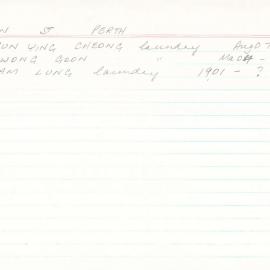 N ST PERTH
UN YING CHEONG laundry Aug 0
WONG GOON "
AM LUNG laundry 1901 - ?